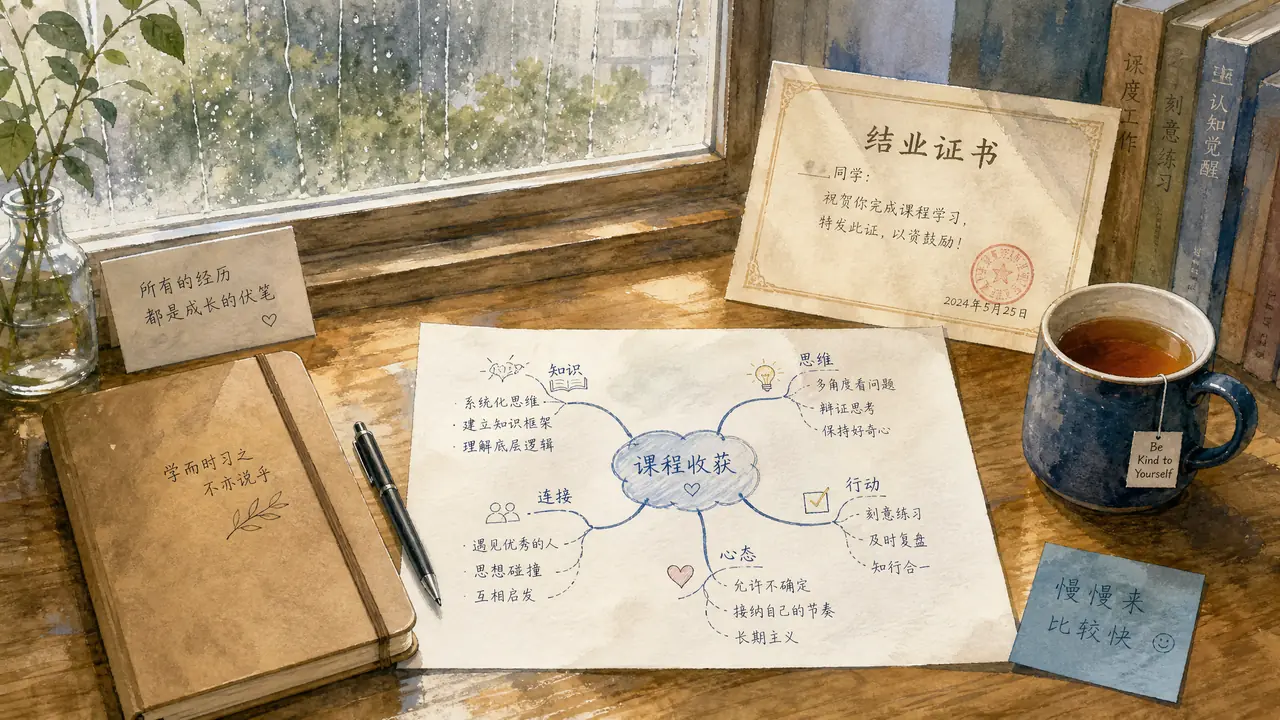 所有的经历
都是成长的伏笔
学而时习之
不亦说乎
结业证书
同学：
祝贺你完成课程学习，
特发此证，以资鼓励！
2024年5月25日
刻意练习
认知觉醒
课程收获
知识
系统化思维
建立知识框架
理解底层逻辑
思维
多角度看问题
辩证思考
保持好奇心
连接
遇见优秀的人
思想碰撞
互相启发
心态
允许不确定
接纳自己的节奏
长期主义
行动
刻意练习
及时复盘
知行合一
Be
Kind to
Yourself
慢慢来
比较快